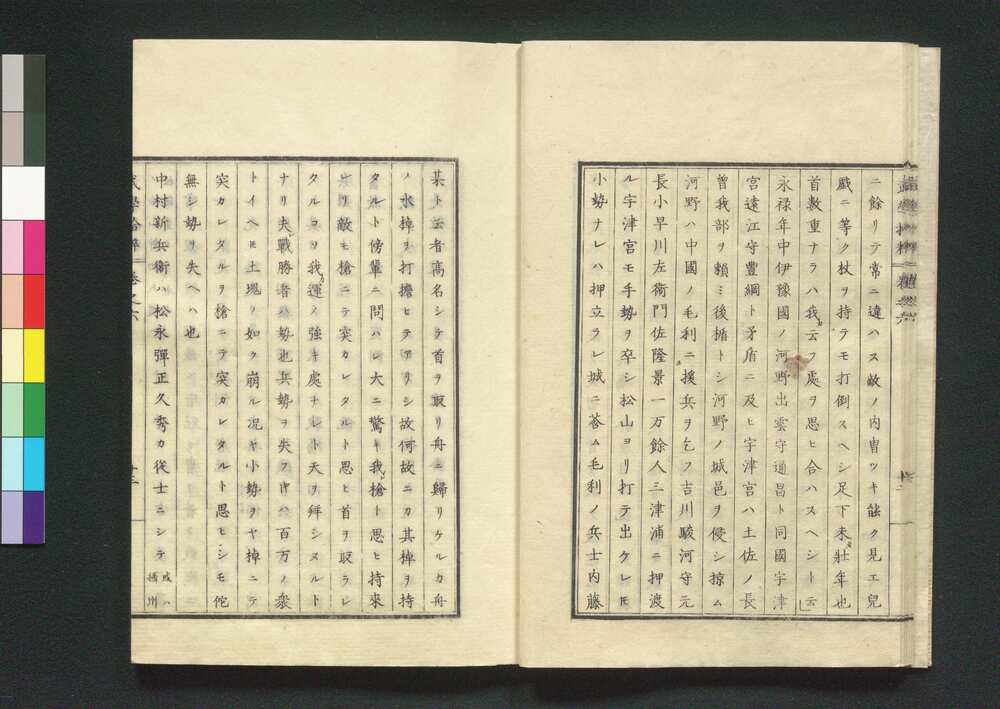 ニ餘リテ常ニ違ハス敵ノ内冑ツキ能ク見エ兒
戯ニ等ク杖ヲ持テモ打倒スヘシ足下未壯年也
首數重ナラハ我云フ處ヲ思ヒ合ハスヘシト云
永禄年中伊豫國ノ河野出雲守通昌ト同國宇津
宮遠江守豊綱ト矛盾ニ及ヒ宇津宮ハ土佐ノ長
曽我部ヲ頼ミ後楯トシ河野ノ城邑ヲ侵シ掠ム
河野ハ中國ノ毛利ニ援兵ヲ乞フ吉川駿河守元
長小早川左衛門佐隆景一万餘人三津浦ニ押渡
ル宇津宮モ手勢ヲ卒シ松山ヨリ打テ出クレ𪜈
小勢ナレハ押立ラレ城ニ荅ム毛利ノ兵士内藤
某ト云者高名シテ首ヲ取リ舟ニ歸リケルカ舟
ノ水棹ヲ打擔ヒテアリシ故何故ニカ其棹ヲ持
タルト傍輩ニ問ハレ大ニ驚キ我槍ト思ヒ持來
レリ敵モ槍ニテ突カレタルト思ヒ首ヲ取ラレ
タルコヲ我運ノ強キ處ナルト天ヲ拜シヌルト
ナリ夫戰勝者ハ勢也兵勢ヲ失フ𪜈ハ百万ノ衆
トイヘ𪜈土塊ノ如ク崩ル況ヤ小勢ヲヤ棹ニテ
突カレタルヲ槍ニテ突カレタルト思ヒシモ佗
無シ勢ヲ失ヘハ也
中村新兵衛ハ松永彈正久秀カ從士ニシテ或ハ攝州